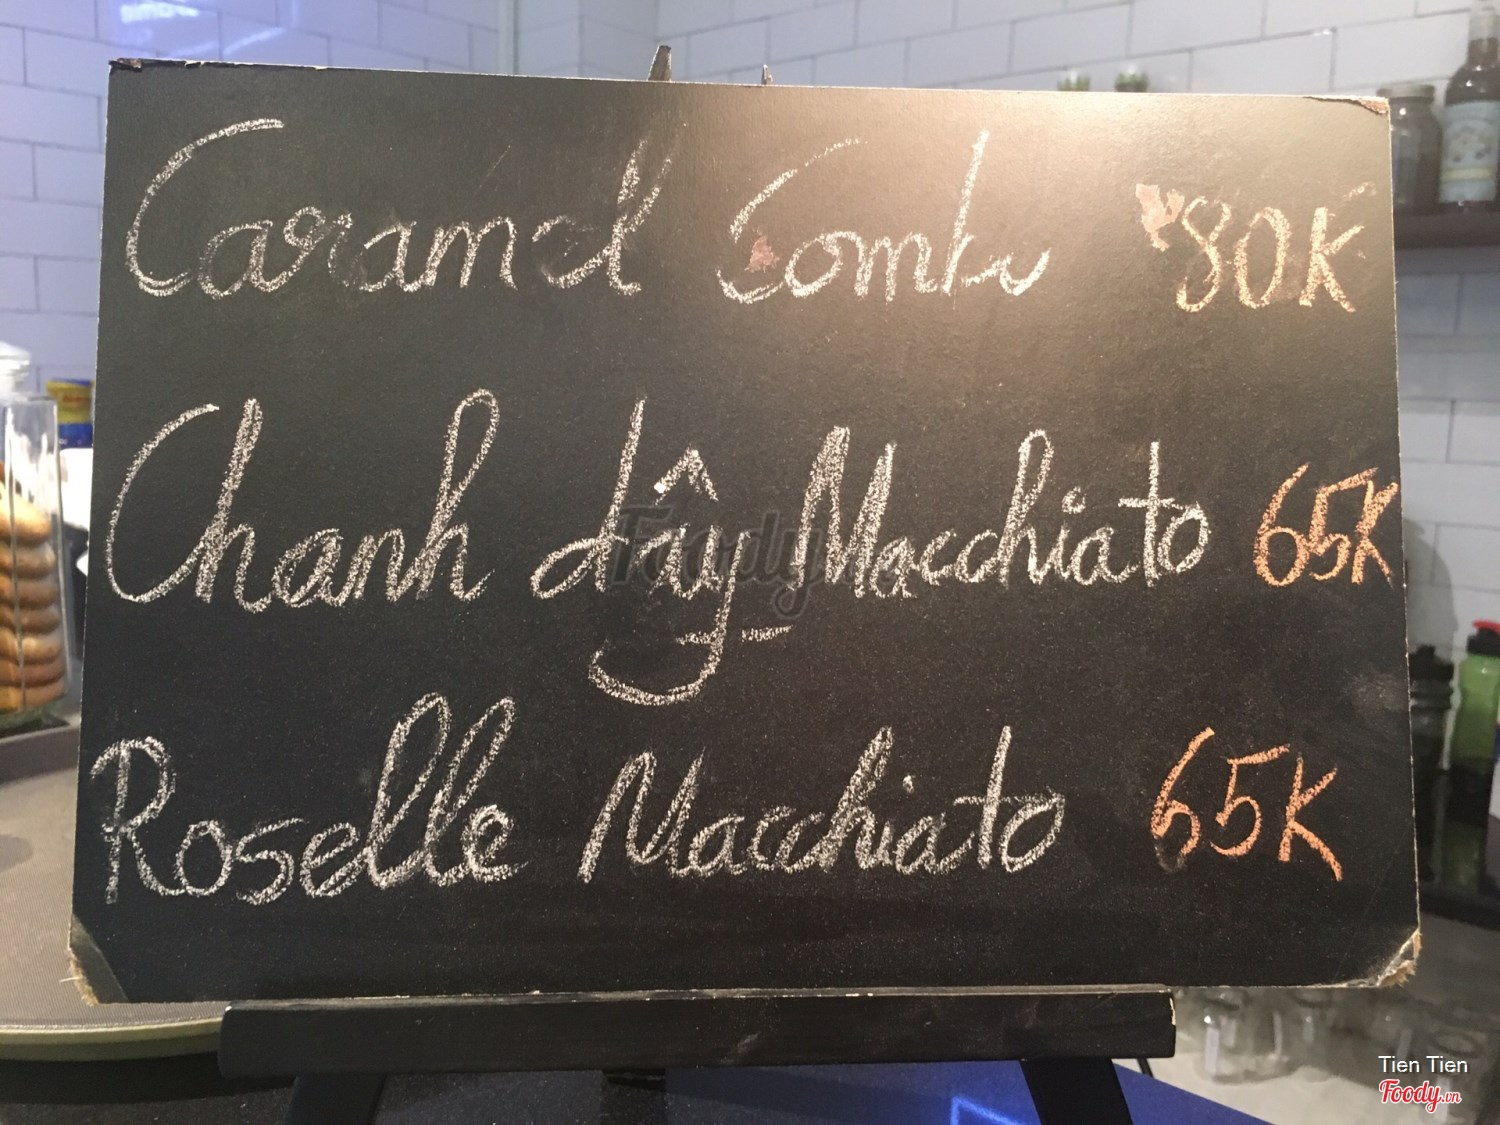 Caramel Combo 80K
Chanh dây Macchiato 65K
Roselle Macchiato 65K
Foody
Tien Tien
Foody.vn